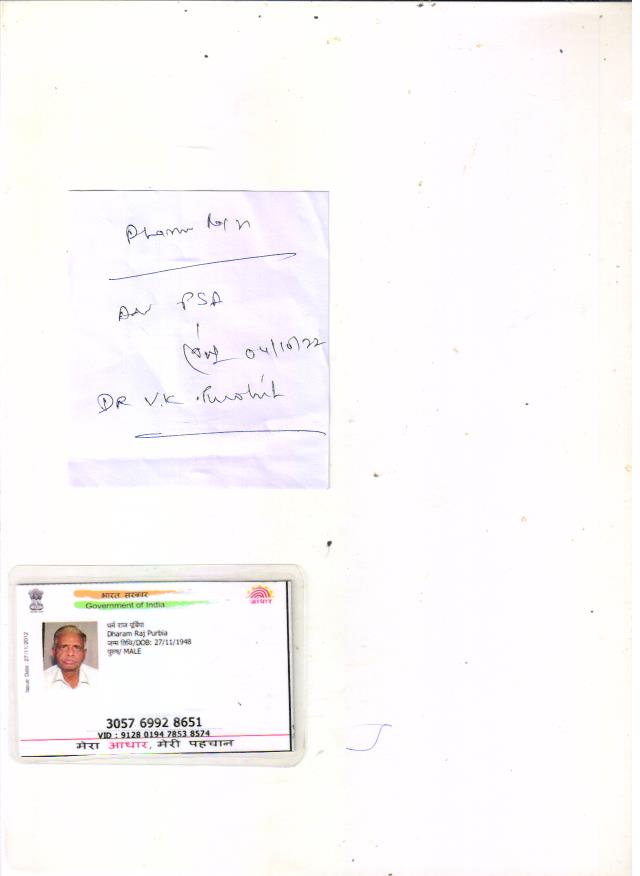 Dharm Raj
Adv PSA
04/10/22
DR V.K. Purohit
भारत सरकार
Government of India
आधार
Issue Date: 27/11/2012
धर्म राज पूर्बिया
Dharam Raj Purbia
जन्म तिथि/DOB: 27/11/1948
पुरुष/ MALE
3057 6992 8651
VID : 9128 0194 7853 8574
मेरा आधार, मेरी पहचान